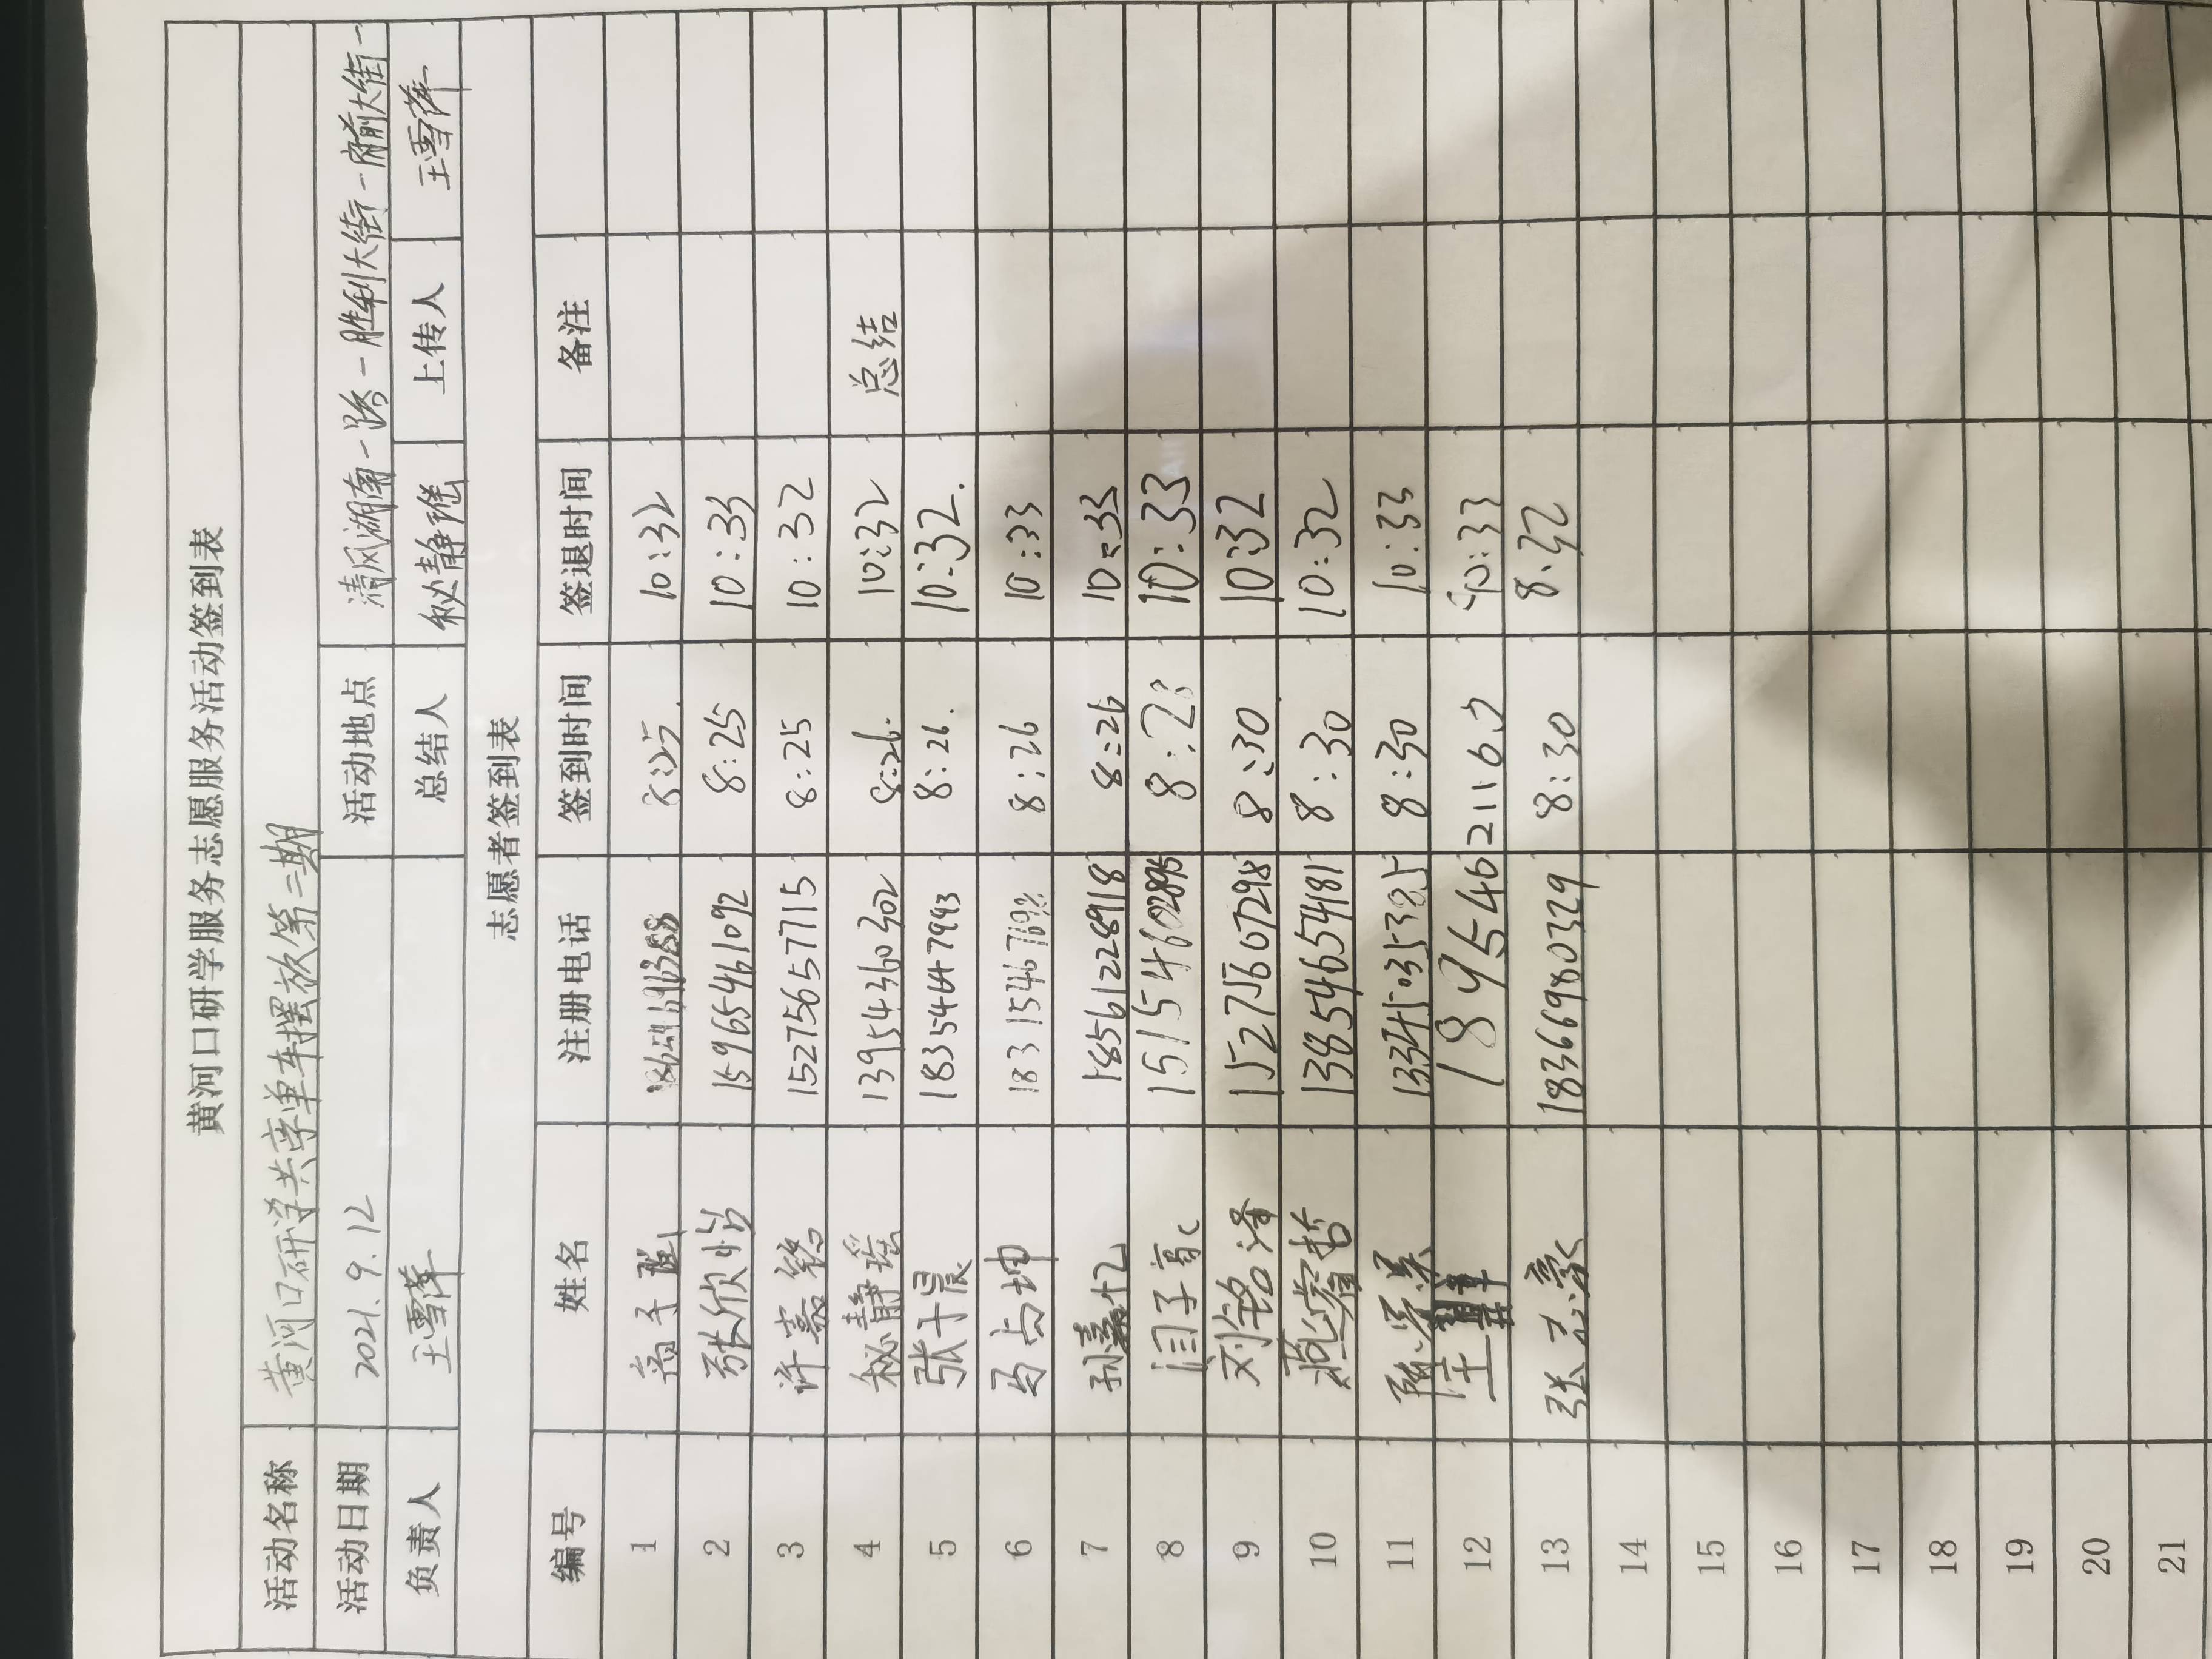 黄河口研学服务志愿服务活动签到表
活动名称 黄河口研学共享单车摆放第二期
活动日期 2021.9.12 活动地点 清风湖南一路-胜利大街-府前大街-
负责人 王雪萍 总结人 秘静瑶 上传人 王雪萍
志愿者签到表
编号 姓名 注册电话 签到时间 签退时间 备注
1 8:25. 10:32
2 张欣怡 15965461092 8:25 10:33
3 许嘉铭 15275657715 8:25 10:32
4 秘静瑶 13954360302 8:26. 10:32 总结
5 张千晨 18354647993 8:26. 10:32.
6 马占坤 8:26 10:33
7 孙嘉忆 18561228918 8:26 10:33
8 闫子豪 15154602895 8:28 10:33
9 刘铭泽 15275607298 8:30. 10:32
10 燕睿哲 13854654181 8:30 10:32
11 8:30 10:33
12 18954621162 10:33
13 张志豪 18366980329 8:30 8.32
14
15
16
17
18
19
20
21